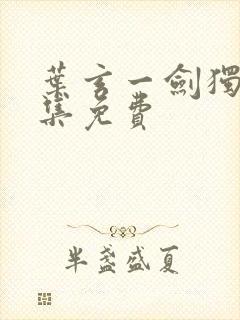 葉玄一劍獨
集免費
半盞盛夏